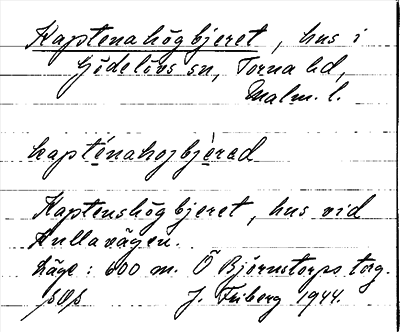 Kaptenahögbjeret, hus i
Gödelövs sn, Torna hd,
Malm. l.
kapténahojbjèrad
Kaptenshögbjeret, hus vid
Kullavägen.
Läge: 600 m. Ö Björnstorps torg.
J. Friberg 1944.